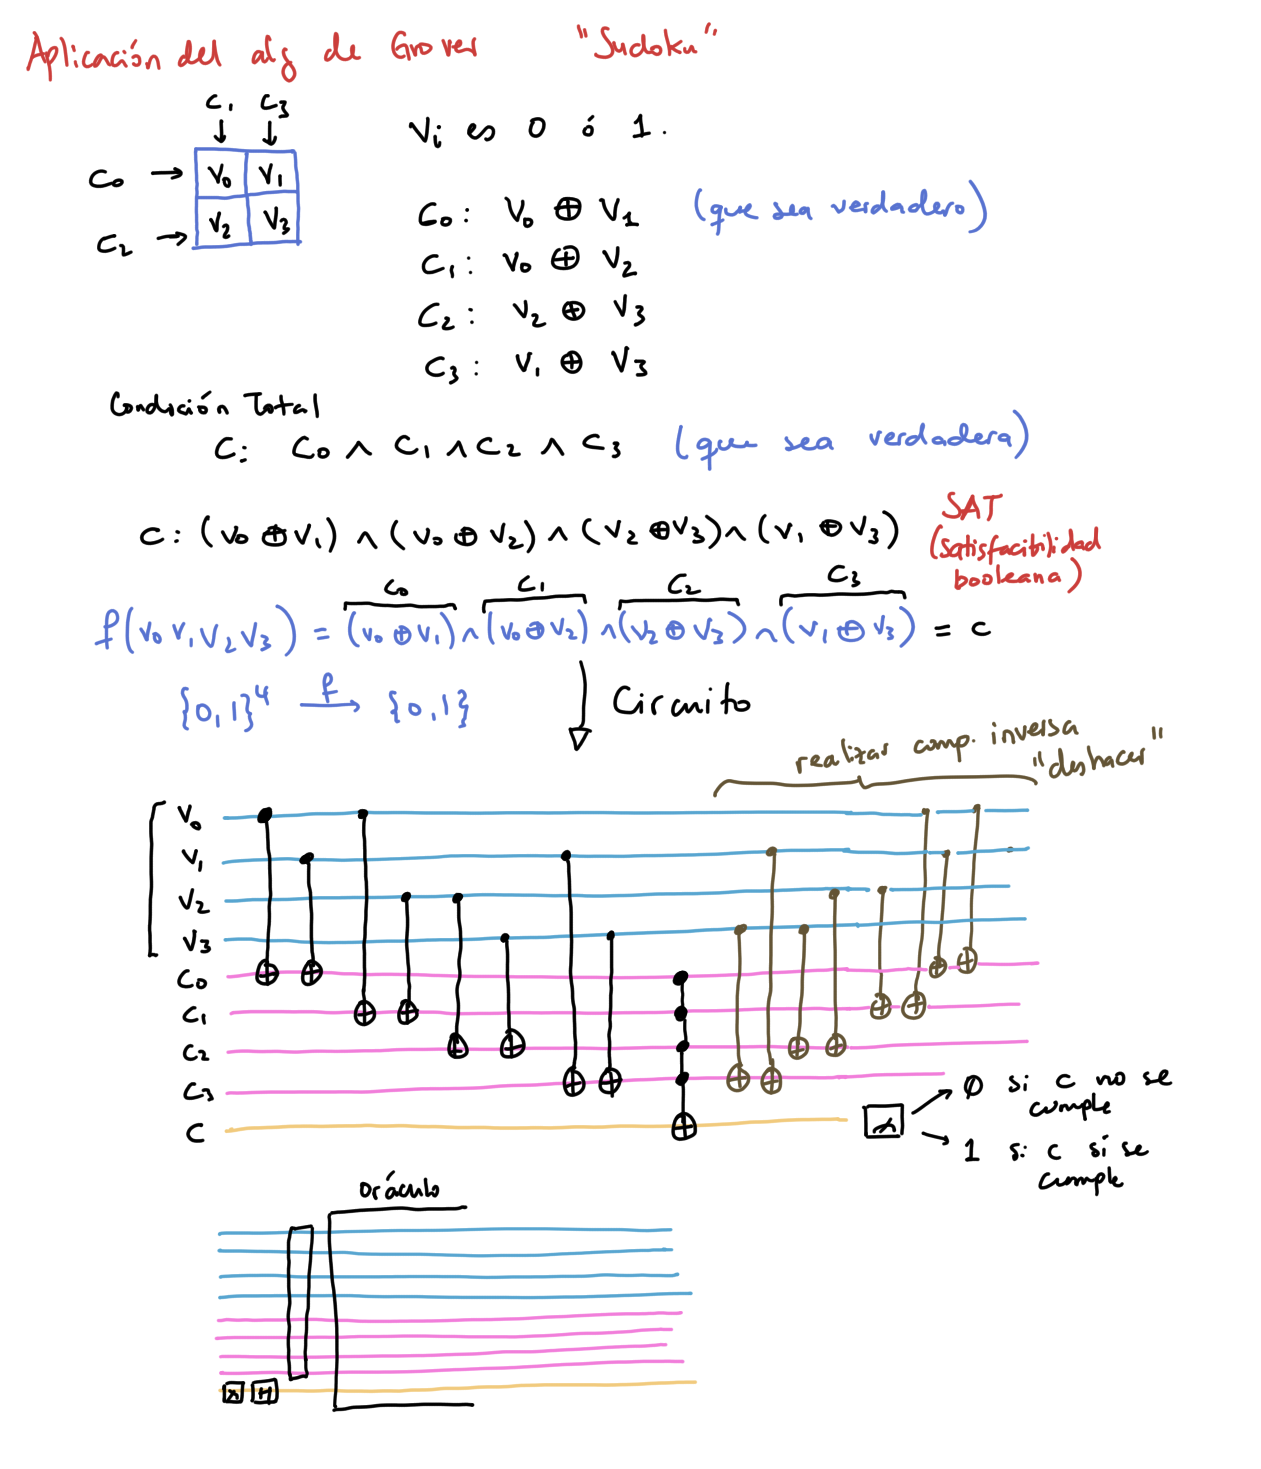 Aplicación del alg de Grover "Sudoku"
C₁ C₃
↓ ↓
C₀ → V₀ V₁
C₂ → V₂ V₃
Vi es 0 ó 1.
C₀: V₀ ⊕ V₁ (que sea verdadero)
C₁: V₀ ⊕ V₂
C₂: V₂ ⊕ V₃
C₃: V₁ ⊕ V₃
Condición Total
C: C₀ ∧ C₁ ∧ C₂ ∧ C₃ (que sea verdadera)
C: (V₀ ⊕ V₁) ∧ (V₀ ⊕ V₂) ∧ (V₂ ⊕ V₃) ∧ (V₁ ⊕ V₃)
SAT
(satisfacibilidad
booleana)
C₀ C₁ C₂ C₃
f(V₀ V₁ V₂ V₃) = (V₀ ⊕ V₁) ∧ (V₀ ⊕ V₂) ∧ (V₂ ⊕ V₃) ∧ (V₁ ⊕ V₃) = C
{0,1}⁴ f→ {0,1}
Circuito
realizar comp. inversa
"deshacer"
V₀
V₁
V₂
V₃
C₀
C₁
C₂
C₃
C
0 si c no se
cumple
1 si c sí se
cumple
Oráculo
X H